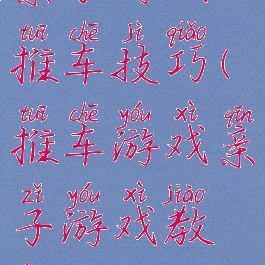 tuī chē jì qiǎo
推车技巧(
tuī chē yóu xì qīn
推车游戏亲
zǐ yóu xì jiào
子游戏教